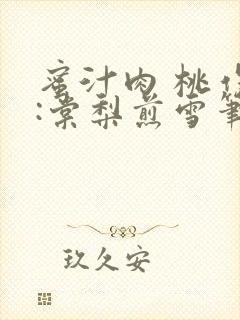 蜜汁肉桃作
:棠梨煎雪筆
玖久安